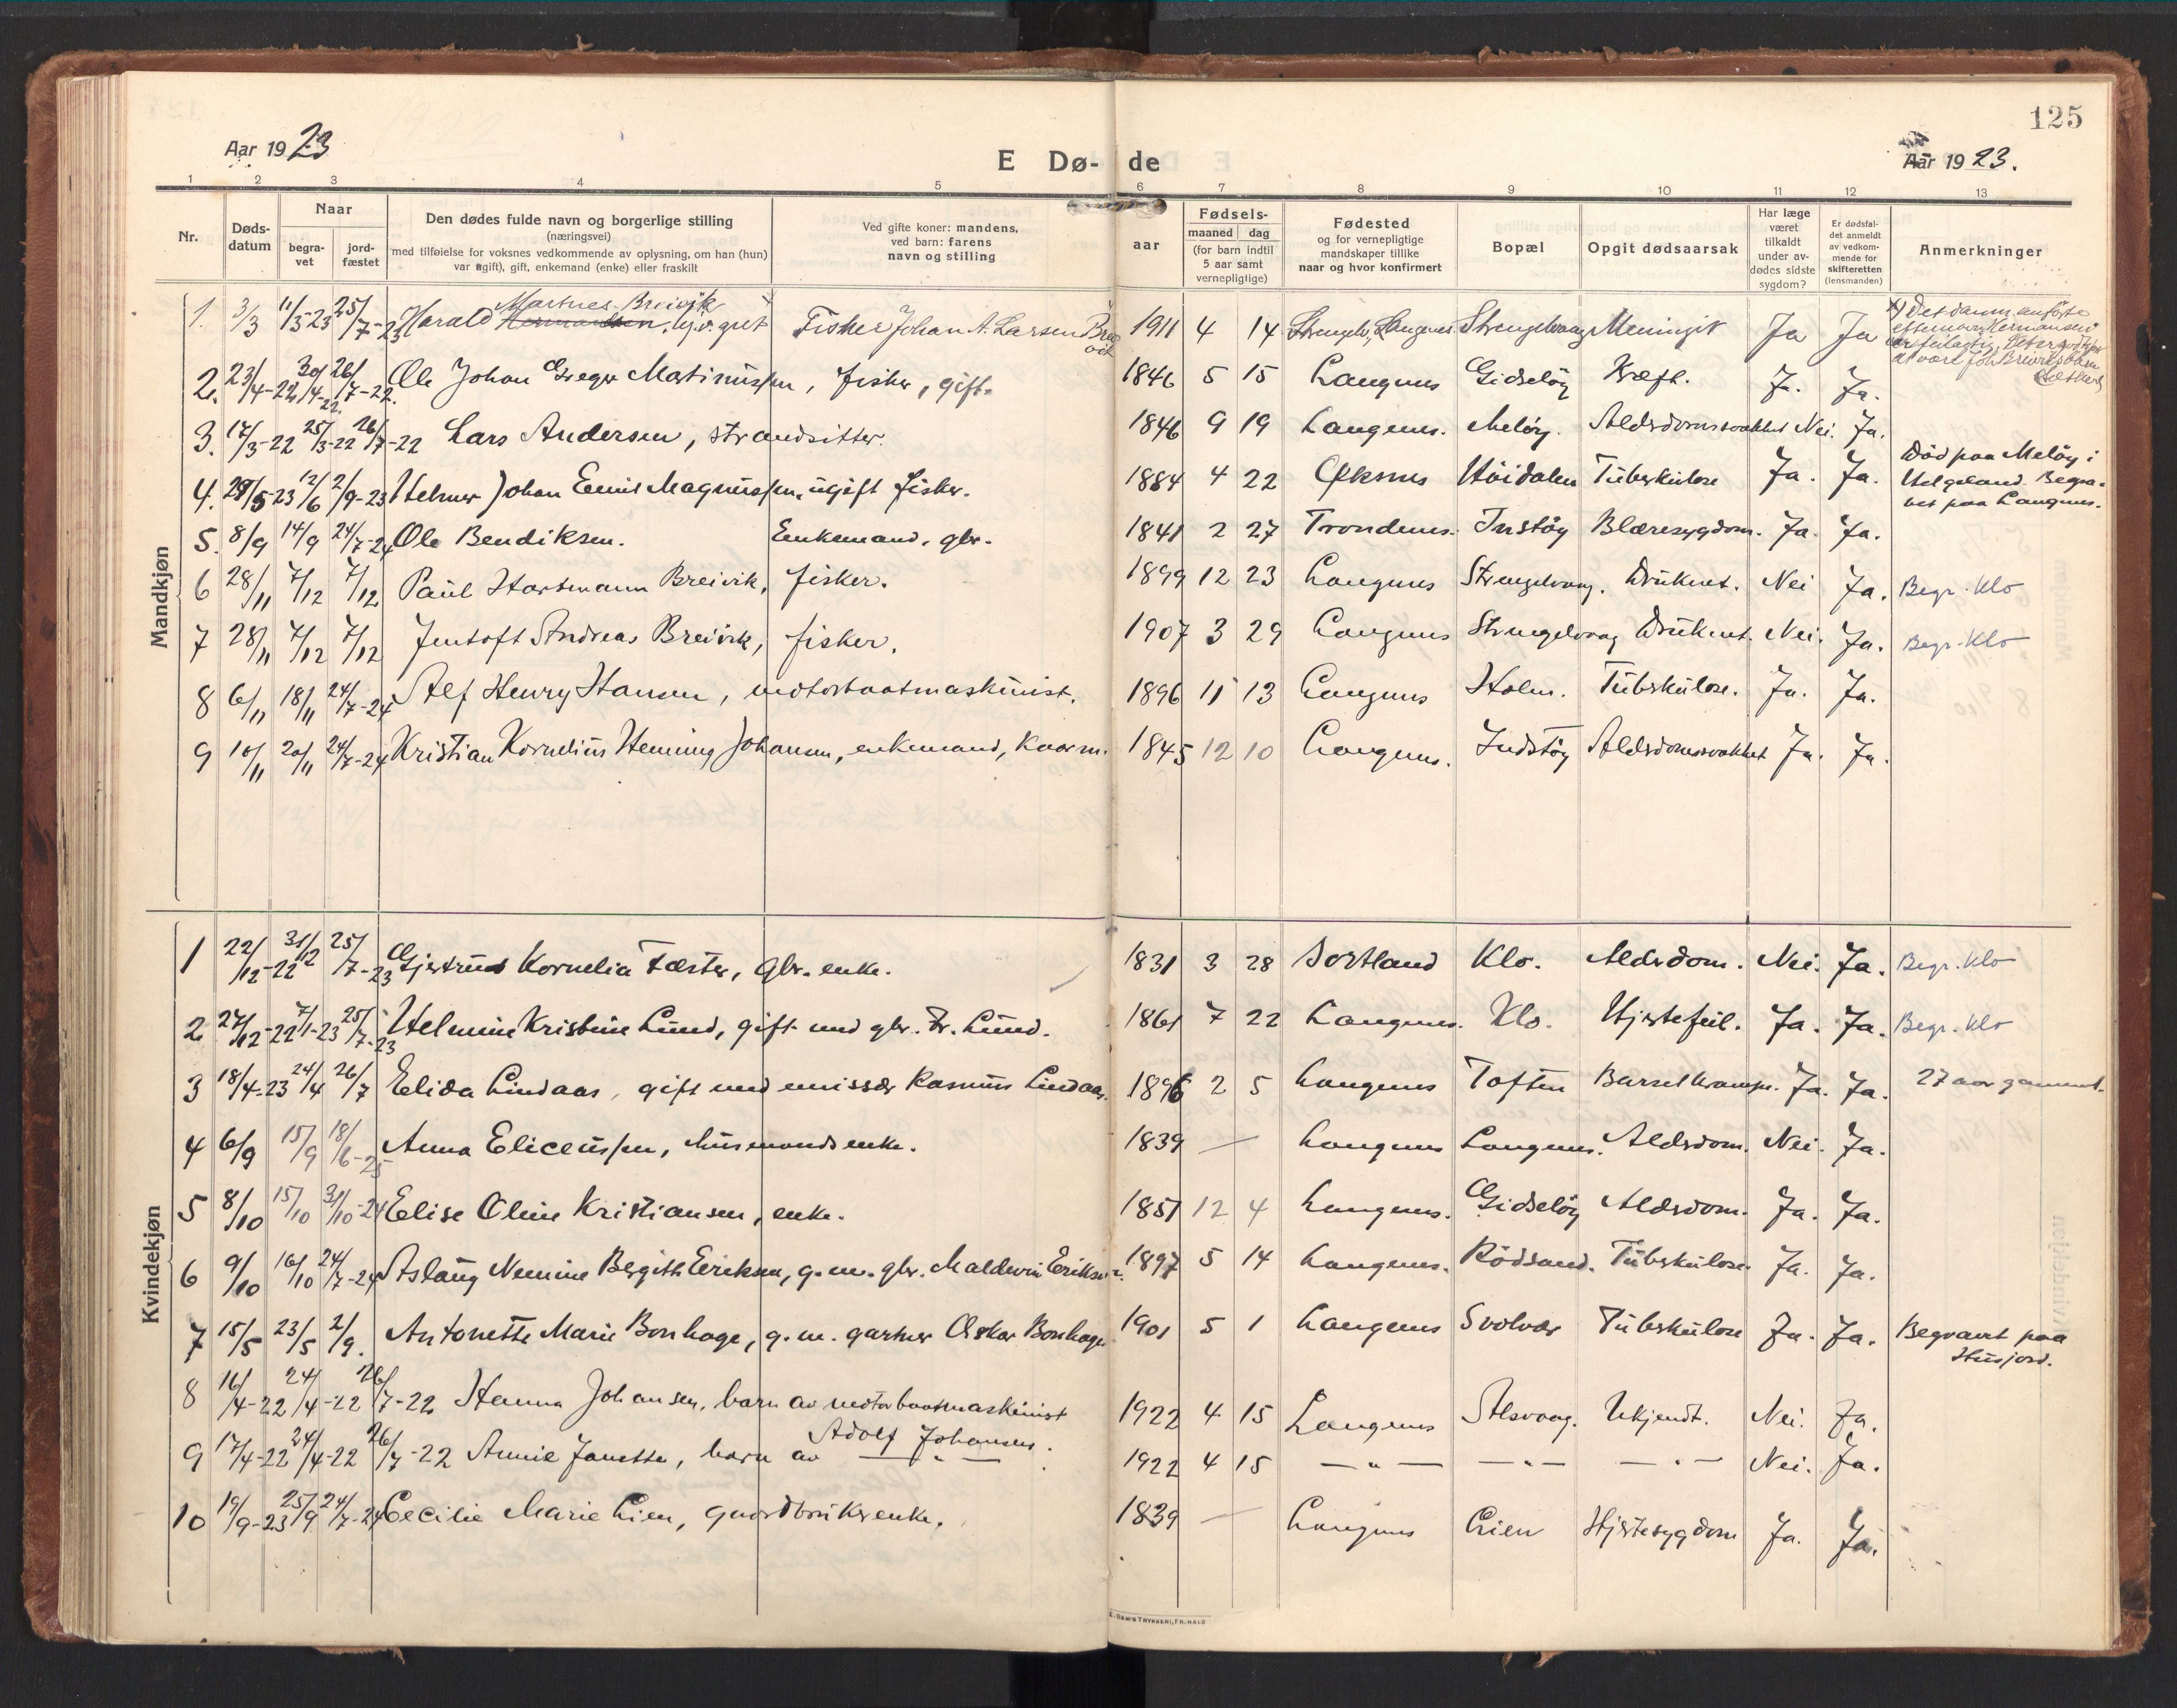 125
Aar 1923
E Dø- de
Aar 1923.
1 2 3 4 5 6 7 8 9 10 11 12 13
Nr.
Døds-
datum
Naar
begra-
vet
jord-
fæstet
Den dødes fulde navn og borgerlige stilling
(næringsvei)
med tilføielse for voksnes vedkommende av oplysning, om han (hun)
var ugift), gift, enkemand (enke) eller fraskilt
Ved gifte koner: mandens,
ved barn: farens
navn og stilling
aar
Fødsels-
maaned dag
(for barn indtil
5 aar samt
vernepligtige)
Fødested
og for vernepligtige
mandskaper tillike
naar og hvor konfirmert
Bopæl
Opgit dødsaarsak
Har læge
været
tilkaldt
under av-
dødes sidste
sygdom?
Er dødsfal-
det anmeldt
av vedkom-
mende for
skifteretten
(lensmanden)
Anmerkninger
Mandkjøn
Martnes Breivik
1. 3/3 11/3-23 25/7-23 Harald Hermansen, Fisker Johan A. Larsen Breivik 1911 4 14 Langenes Strengelvaag Meningit Ja Ja
2. 23/4-22 30/4-22 26/7-22. Ole Johan Greger Martinussen, fisker, gift. 1846 5 15 Langenes Gidsløy Kræft. Ja. Ja.
3. 17/3-22 25/3-22 26/7-22 Lars Andersen, strandsitter. 1846 9 19 Langenes. Meløy. Alderdomssvakhet Nei. Ja.
4. 29/5-23 12/6 2/9-23 Helmer Johan Emil Magnussen, ugift fisker. 1884 4 22 Øksnes Høidalen Tuberkulose Ja. Ja. Død paa Meløy i
Helgeland. Begra-
vet paa Langenes.
5. 8/9 14/9 24/7-24 Ole Bendiksen. Enkemand, gbr. 1841 2 27 Trondenes. Instøy Blæresygdom. Ja. Ja.
6 28/11 7/12 7/12 Paul Hartmann Breivik, fisker. 1899 12 23 Langenes Strengelvaag. Druknet. Nei Ja. Begr. Klo
7 28/11 7/12 7/12 Jentoft Andreas Breivik, fisker. 1907 3 29 Langenes Strengelvaag Druknet. Nei. Ja. Begr. Klo
8 6/11 18/11 24/7-24 Alf Henry Hansen, motorbaatmaskinist. 1896 11 13 Langenes Holm. Tuberkulose. Ja. Ja.
9 10/11 20/11 24/7-24 Kristian Kornelius Henning Johansen, enkemand, kaarm. 1845 12 10 Langenes. Indstøy Alderdomssvakhet Ja. Ja.
Kvindekjøn
1 22/12-22 31/12 25/7-23 Gjertrud Kornelia Fæster, gbr. enke. 1831 3 28 Sortland Klo. Alderdom. Nei. Ja. Begr. Klo
2 27/12-22 7/1-23 25/7-23 Helmine Kristine Lund, gift med gbr. Fr. Lund. 1861 7 22 Langenes. Klo. Hjertefeil. Ja. Ja. Begr. Klo
3 18/4-23 24/4 26/7 Elida Lindaas, gift med emissær Rasmus Lindaas. 1896 2 5 Langenes Toften Barselkrampe. Ja. Ja. 27 aar gammel.
4 6/9 15/9 18/6-25 Anna Eliceussen, husmandsenke. 1839 — Langenes Langenes. Alderdom. Nei. Ja.
5 8/10 15/10 31/10-24 Elise Oline Kristiansen, enke. 1851 12 4 Langenes. Gidsløy Alderdom. Ja. Ja.
6 9/10 16/10 24/7-24 Aslaug Nemine Bergith Eriksen, g. m. gbr. Maldwin Eriksen. 1897 5 14 Langenes. Rødsand. Tuberkulose. Ja. Ja.
7 15/5 23/5 2/9. Antonette Marie Bonhage, g. m. gartner Oskar Bonhage. 1901 5 1 Langenes Svolvær Tuberkulose Ja. Ja. Begravet paa
Husjord.
8 16/4-22 24/4-22 26/7-22 Hanna Johansen, barn av motorbaatmaskinist
Adolf Johansen. 1922 4 15 Langenes Alsvaag. Ukjendt. Nei. Ja.
9 17/4-22 24/4-22 26/7-22 Annie Janette, barn av — " — 1922 4 15 — " — — " — — " — Nei. Ja.
10 19/9-23 25/9 24/7-24 Cecilie Marie Lien, gaardbrukerenke. 1839 — Langenes Lien Hjertesygdom Ja. Ja.